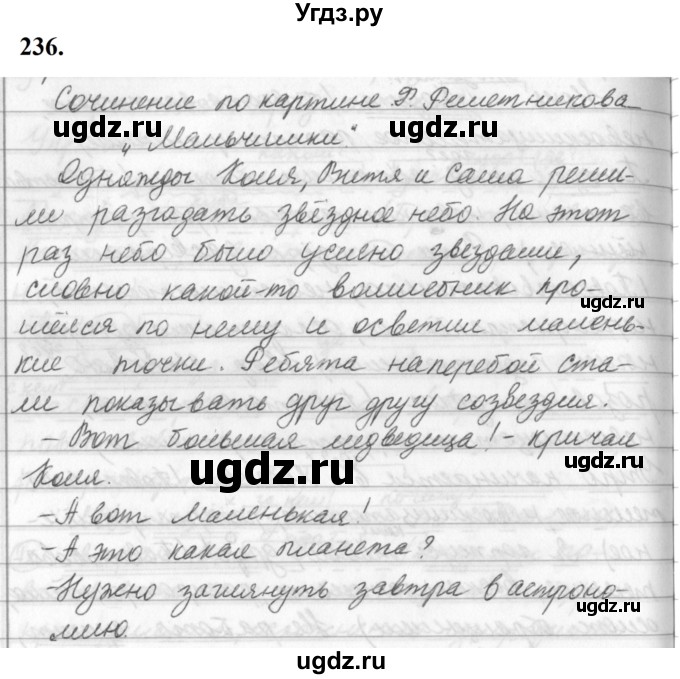 Угдз.ру
236.
Сочинение по картине Ф. Решетникова
ugdz.ru ugdz.ru
"Мальчишки"
Однажды Коля, Витя и Саша реши-
ли разгадать звёздное небо. На этот
раз небо было усеяно звездами,
словно какой-то волшебник про-
ugdz.ru
шёлся по нему и осветил малень-
кие точки. Ребята наперебой ста-
ли показывать друг другу созвездия.
- Вот большая медведица! - кричал
ugdz.ru ugdz.ru
Коля.
- А вот Маленькая!
- А это какая планета?
- Нужно заглянуть завтра в астроно-
ugdz.ru
мию.
ugdz.ru